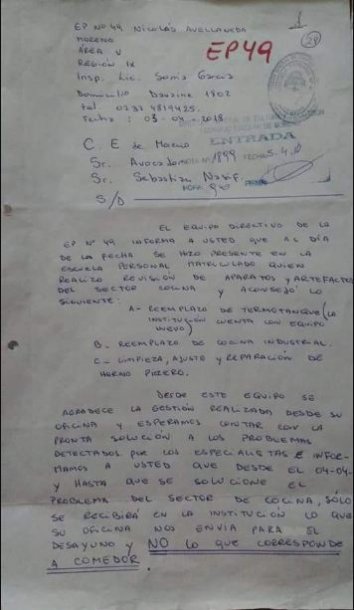 EP Nº 49 NICOLÁS AVELLANEDA
MORENO
ÁREA V
REGIÓN IX
Insp. Lic. Sonia García
Domicilio Daraine 1802
tel. 0237 4819425.
Fecha : 05-04-2018
EP49
29
C. E de Moreno
ENTRADA
Nº 1899
5.4.18
Sr.
Sr. Sebastián Nasif.
HORA
S/D
EL EQUIPO DIRECTIVO DE LA
EP Nº 49 INFORMA A USTED QUE AL DÍA
DE LA FECHA SE HIZO PRESENTE EN LA
ESCUELA PERSONAL MATRICULADO QUIEN
REALIZÓ REVISIÓN DE APARATOS Y ARTEFACTOS
DEL SECTOR COCINA Y ACONSEJÓ LO
SIGUIENTE:
A- REEMPLAZO DE TERMOTANQUE (LA
INSTITUCIÓN CUENTA CON EQUIPO
NUEVO)
B- REEMPLAZO DE COCINA INDUSTRIAL.
C- LIMPIEZA, AJUSTE Y REPARACIÓN DE
HORNO PIZERO.
DESDE ESTE EQUIPO SE
AGRADECE LA GESTIÓN REALIZADA DESDE SU
OFICINA Y ESPERAMOS CONTAR CON LA
PRONTA SOLUCIÓN A LOS PROBLEMAS
DETECTADOS POR LOS ESPECIALISTAS E INFOR-
MAMOS A USTED QUE DESDE EL 04-04-
Y HASTA QUE SE SOLUCIONE EL
PROBLEMA DEL SECTOR DE COCINA, SÓLO
SE RECIBIRÁ EN LA INSTITUCIÓN LO QUE
SU OFICINA NOS ENVIA PARA EL
DESAYUNO Y NO LO QUE CORRESPONDE
A COMEDOR.